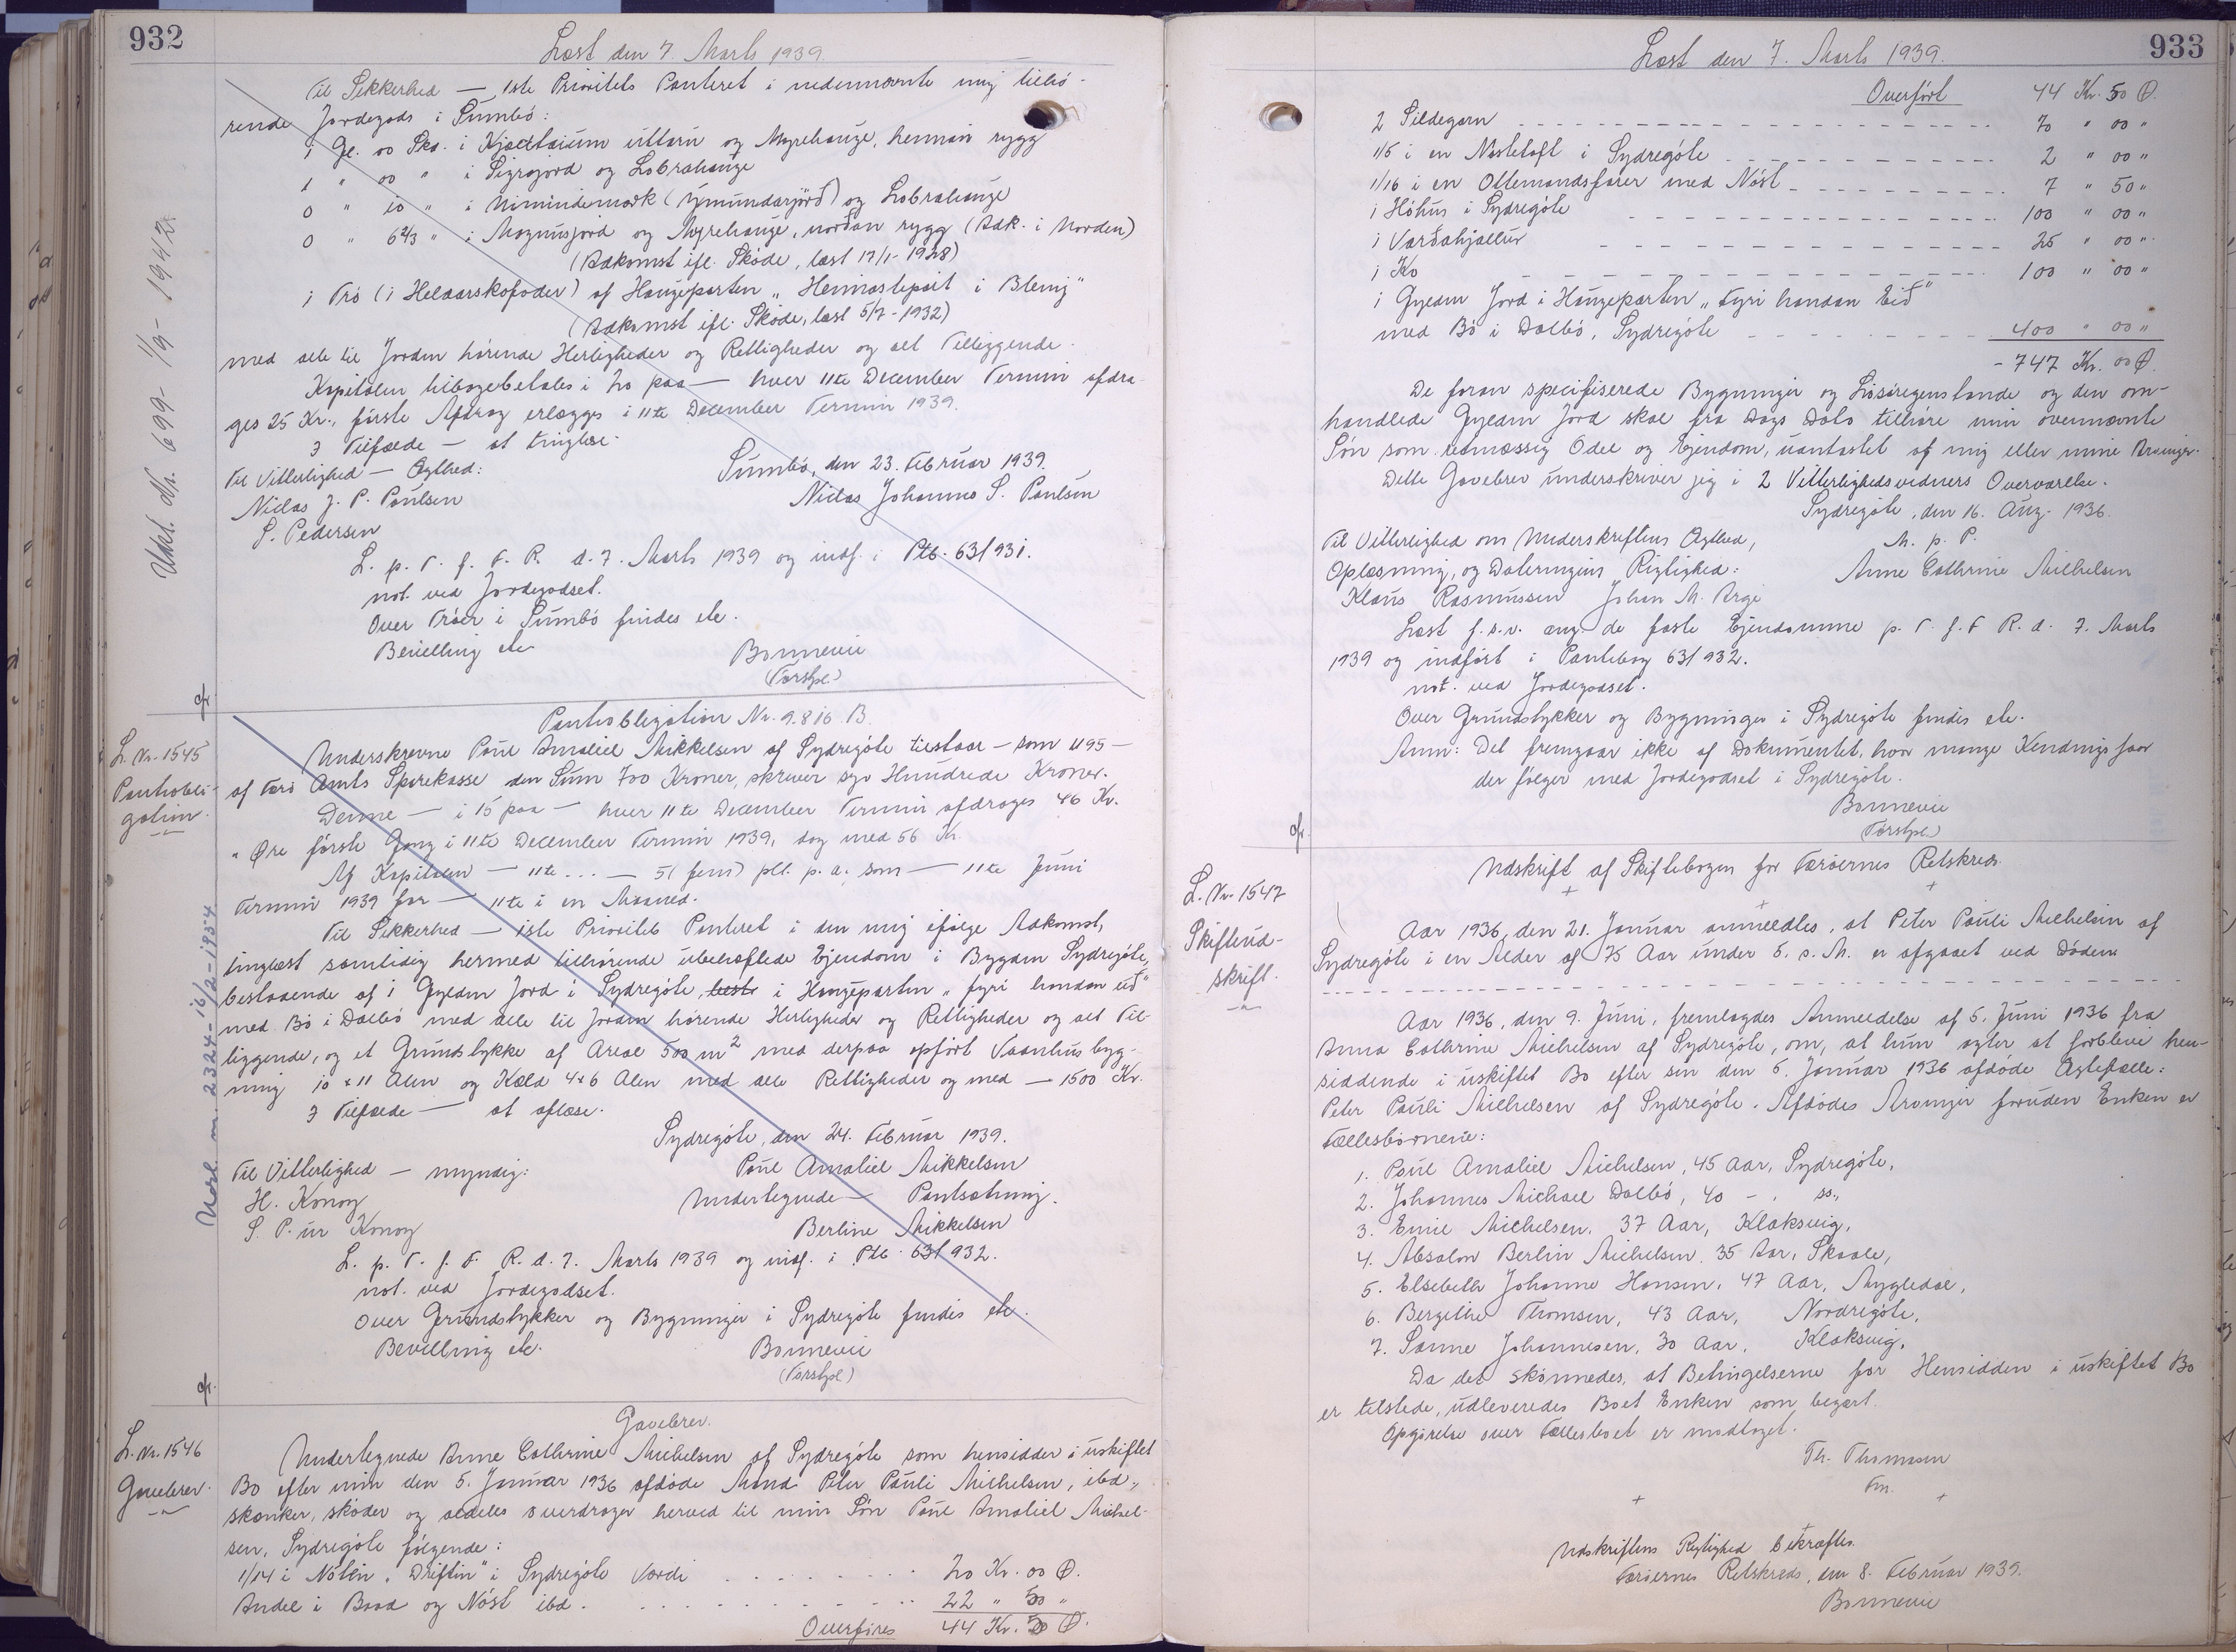 932
Læst den 7. Marts 1939
Til Sikkerhed — 1ste Prioritets Panteret i nedennævnte mig tilhø-
rende Jordegods i Sumbø:
1 Gl. 00 Sk. i Kjøttaium uttaru og Myrehauge, hennan rygg
1 " 00 " i Sigrajord og Lobrahauge
0 " 10 " i Nimindemork (Ymundarjørð) og Lobrahauge
0 " 6 2/3 " i Magnusjord og Myrehauge, norðan rygg (Adk. i Norden)
(Adkomst ifl. Skøde, læst 17/1-1928)
1 Trø (1 Helaarskofoder) af Haugeparten „Heimastepart i Blenij"
(Adkomst ifl. Skøde, læst 5/7-1932)
med alle til Jorden hørende Herligheder og Rettigheder og alt Tilliggende.
Kapitalen tilbagebetales i 20 paa — hver 11te December Termin afdra-
ges 25 Kr., første Afdrag erlægges i 11te December Termin 1939.
I Tilfælde — at tinglæse.
Til Vitterlighed — Ægthed:
Sumbø, den 23. Februar 1939.
Niclas J. P. Poulsen
Niclas Johannes S. Poulsen
S. Pedersen
L. p. T. f. F. R. d. 7. Marts 1939 og indf. i Ptb. 63/931.
not. ved Jordegodset.
Over Trøer i Sumbø findes ele.
Bevilling ele
Bonnevie
(Førstpl.)
Udsl. Nr. 699- 1/9- 1942
L. Nr. 1545
Pantobli-
gation.
Pantobligation Nr. 9.816 B.
Underskrevne Poul Amaliel Mikkelsen af Sydregøte tilstaar — som 1195 —
af Færø Amts Sparekasse den Sum 700 Kroner, skriver syv Hundrede Kroner.
Denne — i 15 paa — hver 11te December Termin afdrages 46 Kr.
" Øre første Gang i 11te December Termin 1939, dog med 56 Kr.
Af Kapitalen — 11te ... — 5 (fem) pCt. p. a. som — 11te Juni
Termin 1939 for — 11te i en Maaned.
Til Sikkerhed — 1ste Prioritets Panteret i den mig ifølge Adkomst,
tinglæst samtidig hermed tilhørende ubehæftede Ejendom i Bygden Sydregøte,
bestaaende af 1 Gylden Jord i Sydregøte, beste i Haugeparten „fyri handan eið"
med Bø i Dalbø med alle til Jorden hørende Herligheder og Rettigheder og alt Til-
liggende, og et Grundstykke af Areal 500 m² med derpaa opført Vaanhusbyg-
ning 10 x 11 Alen og Kæld 4x6 Alen med alle Rettigheder og med — 1500 Kr.
I Tilfælde — at aflæse.
Sydregøte, den 24. Februar 1939.
Til Vitterlighed — myndig:
Poul Amaliel Mikkelsen
H. Konoy
Undertegnede — Pantsætning.
S. P. ur Konoy
Berline Mikkelsen
L. p. T. f. F. R. d. 7. Marts 1939 og indf. i Ptb. 63/932.
not. ved Jordegodset.
Over Grundstykker og Bygninger i Sydregøte findes ele.
Bevilling ele.
Bonnevie
(Førstpl.)
Udsl. nr. 2324-16/2-1954
L. Nr. 1546
Gavebrev.
Gavebrev.
Undertegnede Anne Cathrine Michelsen af Sydregøte som hensidder i uskiftet
Bo efter min den 5. Januar 1936 afdøde Mand Peter Pauli Michelsen, ibd.,
skænker, skøder og aldeles overdrager herved til min Søn Poul Amaliel Michel-
sen, Sydregøte følgende:
1/14 i Nôtin „Driftin" i Sydregøte Værdi . . . . . . . . . 20 Kr. 00 Ø.
Andel i Baad og Nôst ibd. . . . . . . . . . . . 22 " 50 "
Overføres 44 Kr. 50 Ø.
933
Læst den 7. Marts 1939.
Overført 44 Kr. 50 Ø.
2 Sildegarn 70 " 00 "
1/5 i en Nøstetoft i Sydregøte 2 " 00 "
1/16 i en Ottemandsfarer med Nôst 7 " 50 "
1 Hôhus i Sydregøte 100 " 00 "
1 Varðahjallur 25 " 00 "
1 Ko 100 " 00 "
1 Gylden Jord i Haugeparten „Fyri handan Eið"
med Bø i Dalbø, Sydregøte 400 " 00 "
- 747 Kr. 00 Ø.
De foran specifiserede Bygninger og Løsøregenstande og den om-
handlede Gylden Jord skal fra Dags Dato tilhøre min ovennævnte
Søn som retmæssig Odel og Ejendom, uantastet af mig eller mine Arvinger.
Dette Gavebrev underskriver jeg i 2 Vitterlighedsvidners Overværelse.
Sydregøte, den 16. Aug. 1936.
Til Vitterlighed om Underskriftens Ægthed,
M. p. P.
Oplæsning, og Dateringens Rigtighed:
Anne Cathrine Michelsen
Klaus Rasmussen Johan M. Arge
Læst f. s. v. ang. de faste Ejendomme p. T. f. F. R. d. 7. Marts
1939 og indført i Pantebog 63/932.
not. ved Jordegodset.
Over Grundstykker og Bygninger i Sydregøte findes ele.
Anm: Det fremgaar ikke af Dokumentet, hvor mange Kendingsfaar
der følger med Jordegodset i Sydregøte.
Bonnevie
(Førstpl.)
L. Nr. 1547
Skifteud-
skrift.
Udskrift af Skiftebogen for Færøernes Retskreds.
Aar 1936, den 21. Januar anmeldtes, at Peter Pauli Michelsen af
Sydregøte i en Alder af 75 Aar under 5. s. M. er afgaaet ved Døden.
Aar 1936, den 9. Juni, fremlagdes Anmeldelse af 5. Juni 1936 fra
Anna Cathrine Michelsen af Sydregøte, om, at hun agter at forblive hen-
siddende i uskiftet Bo efter sin den 5. Januar 1936 afdøde Ægtefælle:
Peter Pauli Michelsen af Sydregøte. Afdødes Arvinger foruden Enken er
Fællesbørnene:
1. Poul Amaliel Michelsen, 45 Aar, Sydregøte,
2. Johannes Michael Dalbø, 40 - , do.,
3. Emil Michelsen, 37 Aar, Klaksvig,
4. Absalon Berlin Michelsen, 35 Aar, Skaale,
5. Elsebeth Johanne Hansen, 47 Aar, Mygledal,
6. Bergithe Thomsen, 43 Aar, Nordregøte,
7. Sanne Johannesen, 30 Aar, Klaksvig.
Da det skønnedes, at Betingelserne for Hensidden i uskiftet Bo
er tilstede, udleveredes Boet Enken som begært.
Opgørelse over Fællesboet er modtaget.
Th. Thomsen
Fm.
Udskriftens Rigtighed bekræftes.
Færøernes Retskreds, den 8. Februar 1939.
Bonnevie